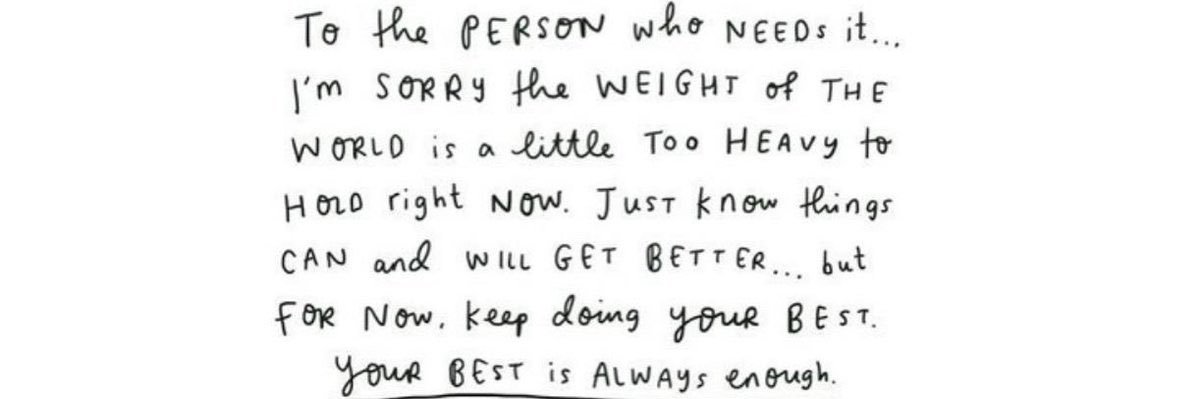 To the PERSON who NEEDS it...
I'm SORRY the WEIGHT of THE
WORLD is a little TOO HEAVY to
HOLD right NOW. JUST know things
CAN and WILL GET BETTER... but
FOR NOW, keep doing YOUR BEST.
YOUR BEST is ALWAYS enough.